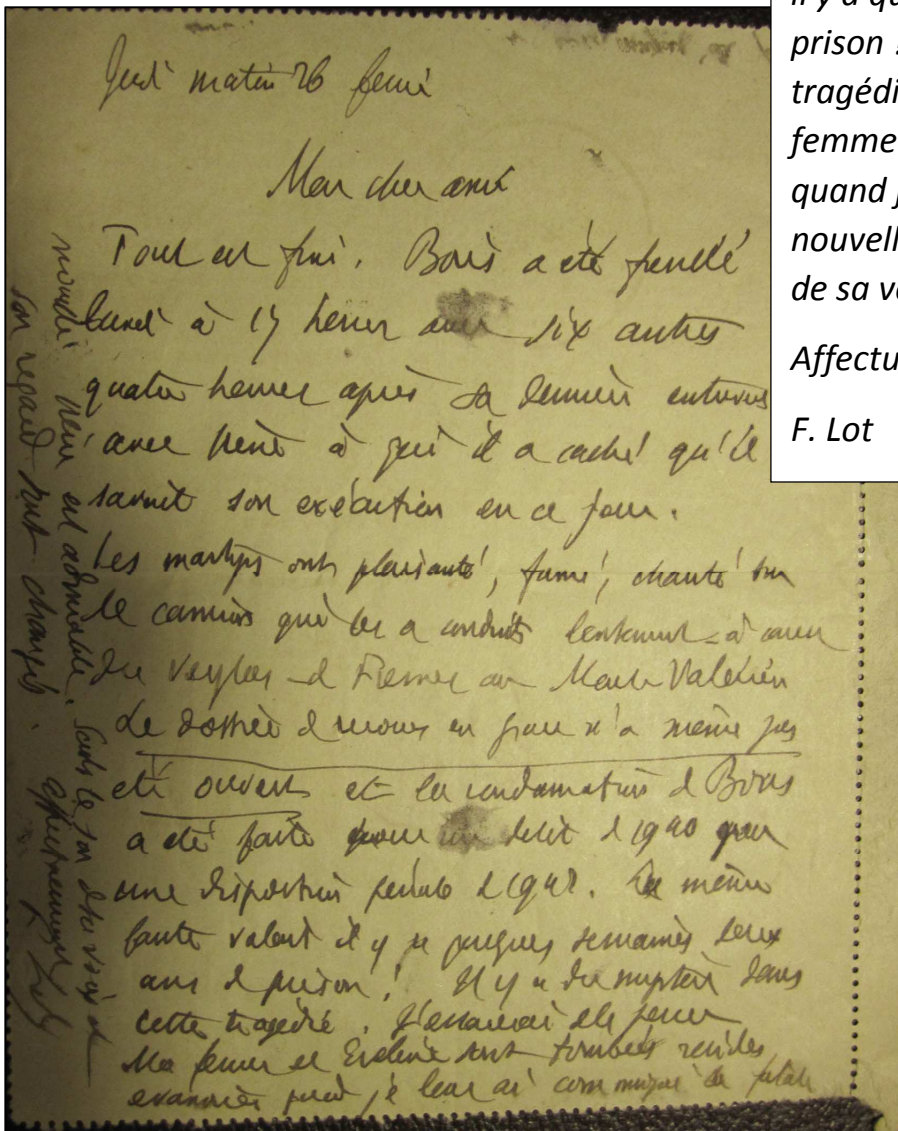 Jeudi matin 26 février
Mon cher ami
Tout est fini. Boris a été fusillé
lundi à 17 heures avec six autres
quatre heures après sa dernière entrevue
avec Irène à qui il a caché qu'il
savait son exécution en ce jour.
Les martyrs ont plaisanté, fumé, chanté sur
le camion qui les a conduits lentement à cause
du verglas de Fresnes au Mont Valérien
Le dossier de recours en grâce n'a même pas
été ouvert et la condamnation de Boris
a été faite pour un délit de 1940 par
une disposition pénale de 1941. La même
faute valait il y a quelques semaines deux
ans de prison! Il y a du mystère dans
cette tragédie. J'essaierai de
Ma femme et Eveline sont tombées raides,
évanouies quand je leur ai communiqué la fatale
nouvelle. Irène est admirable. Seuls le son de sa voix et
son regard sont changés.
Affectueusement
il y a qu
prison
tragédi
femme
quand j
nouvell
de sa v
Affectu
F. Lot